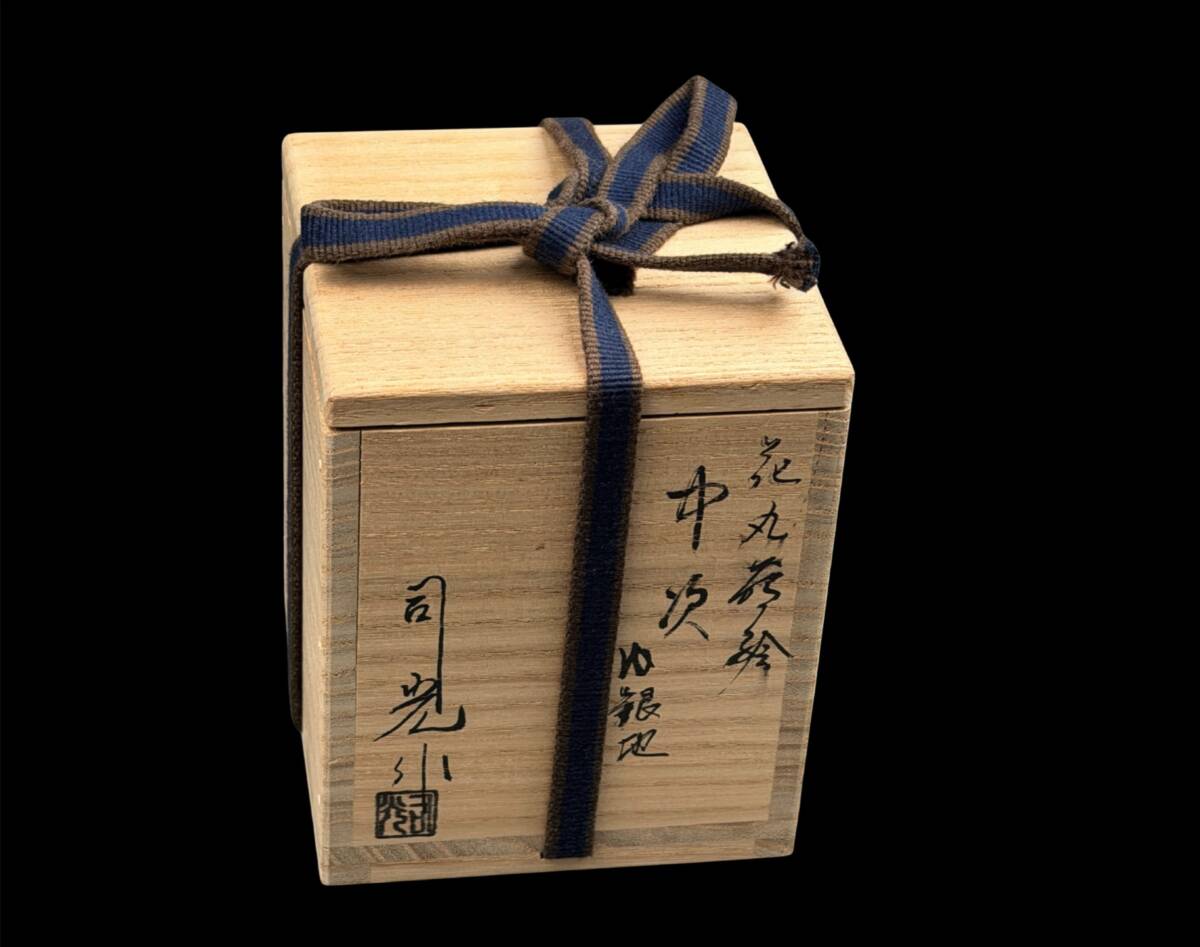 花丸蒔絵
中次
内銀地
司光作
司光